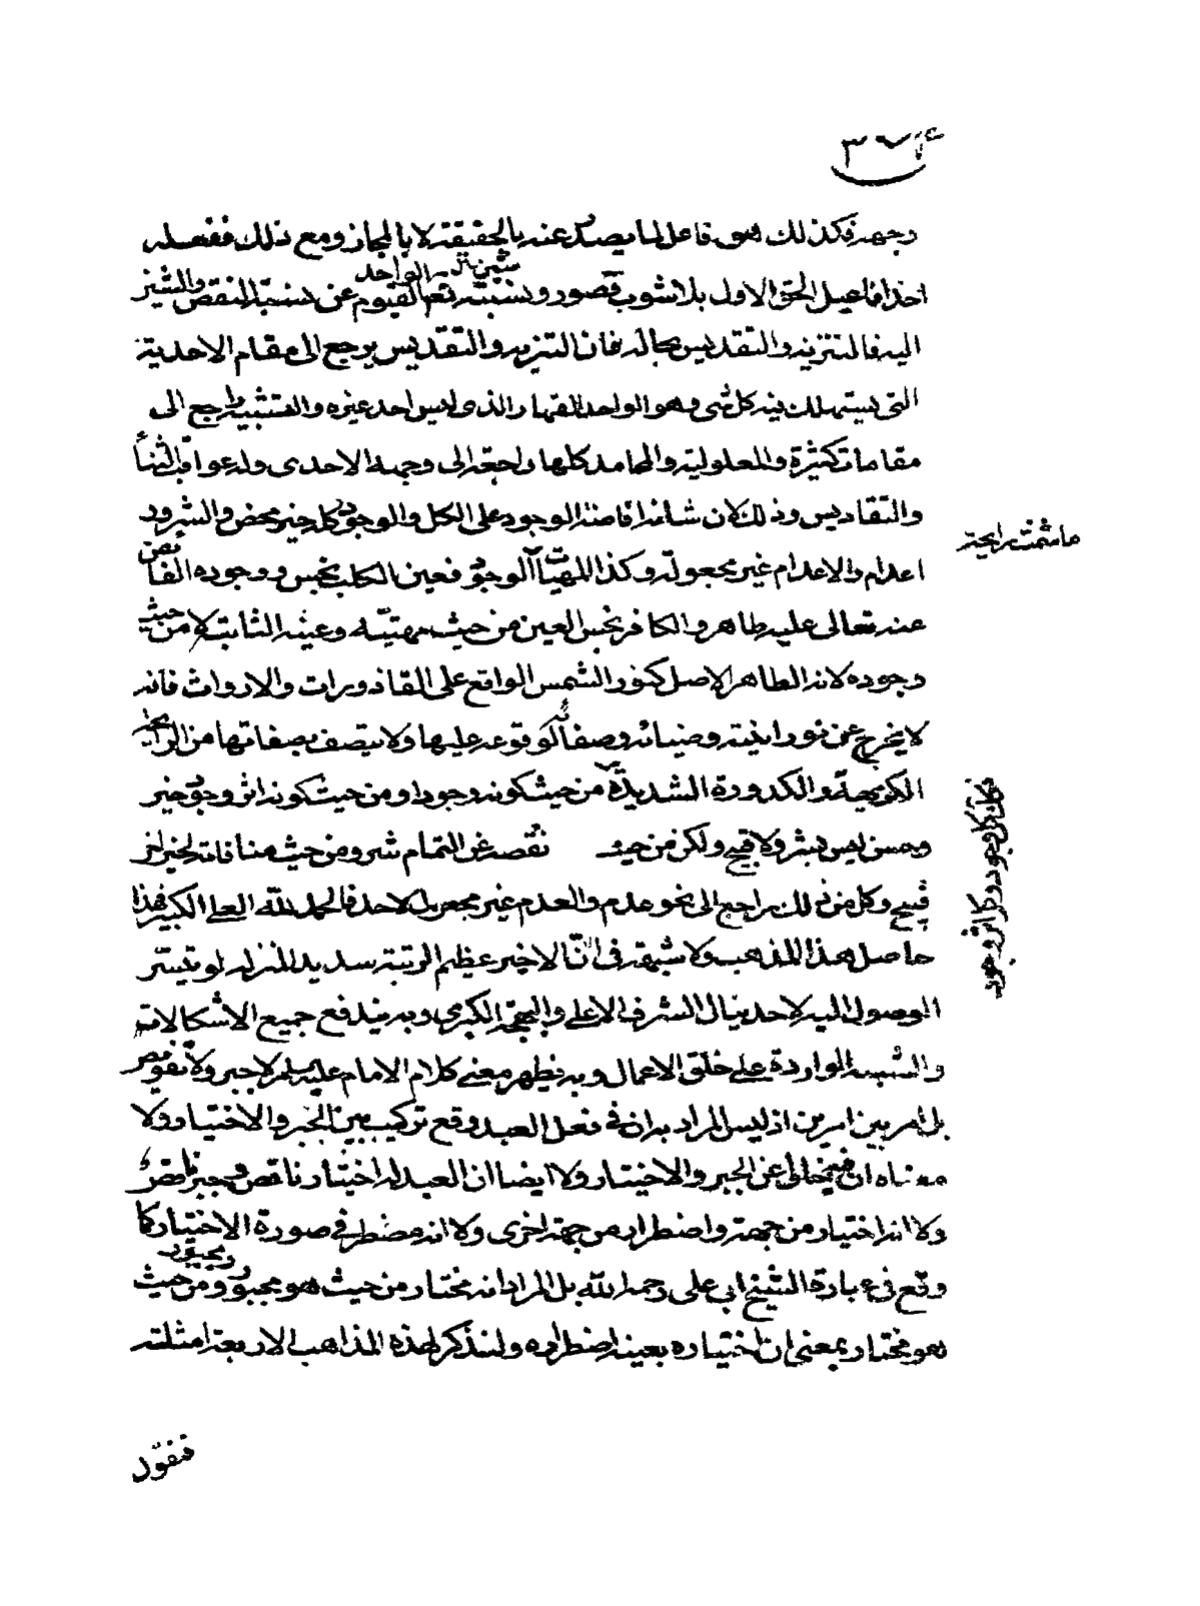 ٣٧٤
وجهه فكذلك هو فاعل لما يصدر عنه بالحقيقة لا بالمجاز ومع ذلك ففعله
احد افاعيل الحق الاول بلا شوب قصور وتشبيه تعالى الواحد القيوم عن نسبة النقص والشين
اليه فالتنزيه والتقديس بحاله فان التنزيه والتقديس يرجع الى مقام الاحدية
التى يستهلك فيه كل شئ وهو الواحد القهار الذى ليس احد غيره والتشبيه راجع الى
مقامات كثرة والمعلولية والمحامد كلها راجعة الى وجهه الاحدى وله عواقب الثناء
والتقاديس وذلك لان شانه افاضة الوجود على الكل والوجود كله خير محض والشرور
ما شمت رايحة
اعدام والاعدام غير مجعولة وكذا المهيات الوجود فعين الكلب نجس ووجوده الفائض
عنه تعالى عليه طاهر والكافر نجس العين من حيث مهيته وعينه الثابت لا من حيث
وجوده لانه الطاهر الاصل كنور الشمس الواقع على القاذورات والارواث فانه
لا يخرج عن نورانيته وضيائه وصفائه لوقوعه عليها ولا يتصف بصفاتها من الرايحة
الكريهة والكدورة الشديدة من حيث كونه وجودا ومن حيث كونه اثر وجود خير
فكذلك كل وجود وكل اثر وجود
وحسن ليس بشر ولا قبيح ولكن من حيث نقصه عن التمام شر ومن حيث منافاته لخير اخر
قبيح وكل من ذلك راجع الى نحو عدم والعدم غير مجعول لاحد فالحمد لله العلى الكبير فهذا
حاصل هذا المذهب ولا شبهة فى ان الاخير عظيم الرتبة سديد المنزله لو تيسر
الوصول اليه لاحد ينال الشرف الاعلى والبهجة الكبرى وبه يندفع جميع الاشكالات
والشبه الواردة على خلق الاعمال وبه يظهر معنى كلام الامام عليه السلم لا جبر ولا تفويض
بل امر بين امرين اذ ليس المراد به ان فى فعل العبد وقع تركيب بين الجبر والاختيار ولا
معناه ان فيه خلوا عن الجبر والاختيار ولا ايضا ان العبد له اختيار ناقص وجبر ناقص
ولا انه اختيار من جهة واضطرار من جهة اخرى ولا انه مضطر فى صورة الاختيار كما
وقع فى عبارة الشيخ ابى على رحمه الله بل المراد انه مختار من حيث هو مجبور ومجبور من حيث
هو مختار بمعنى ان اختياره بعينه اضطراره ولنذكر لهذه المذاهب الاربعة امثلة
فنقول